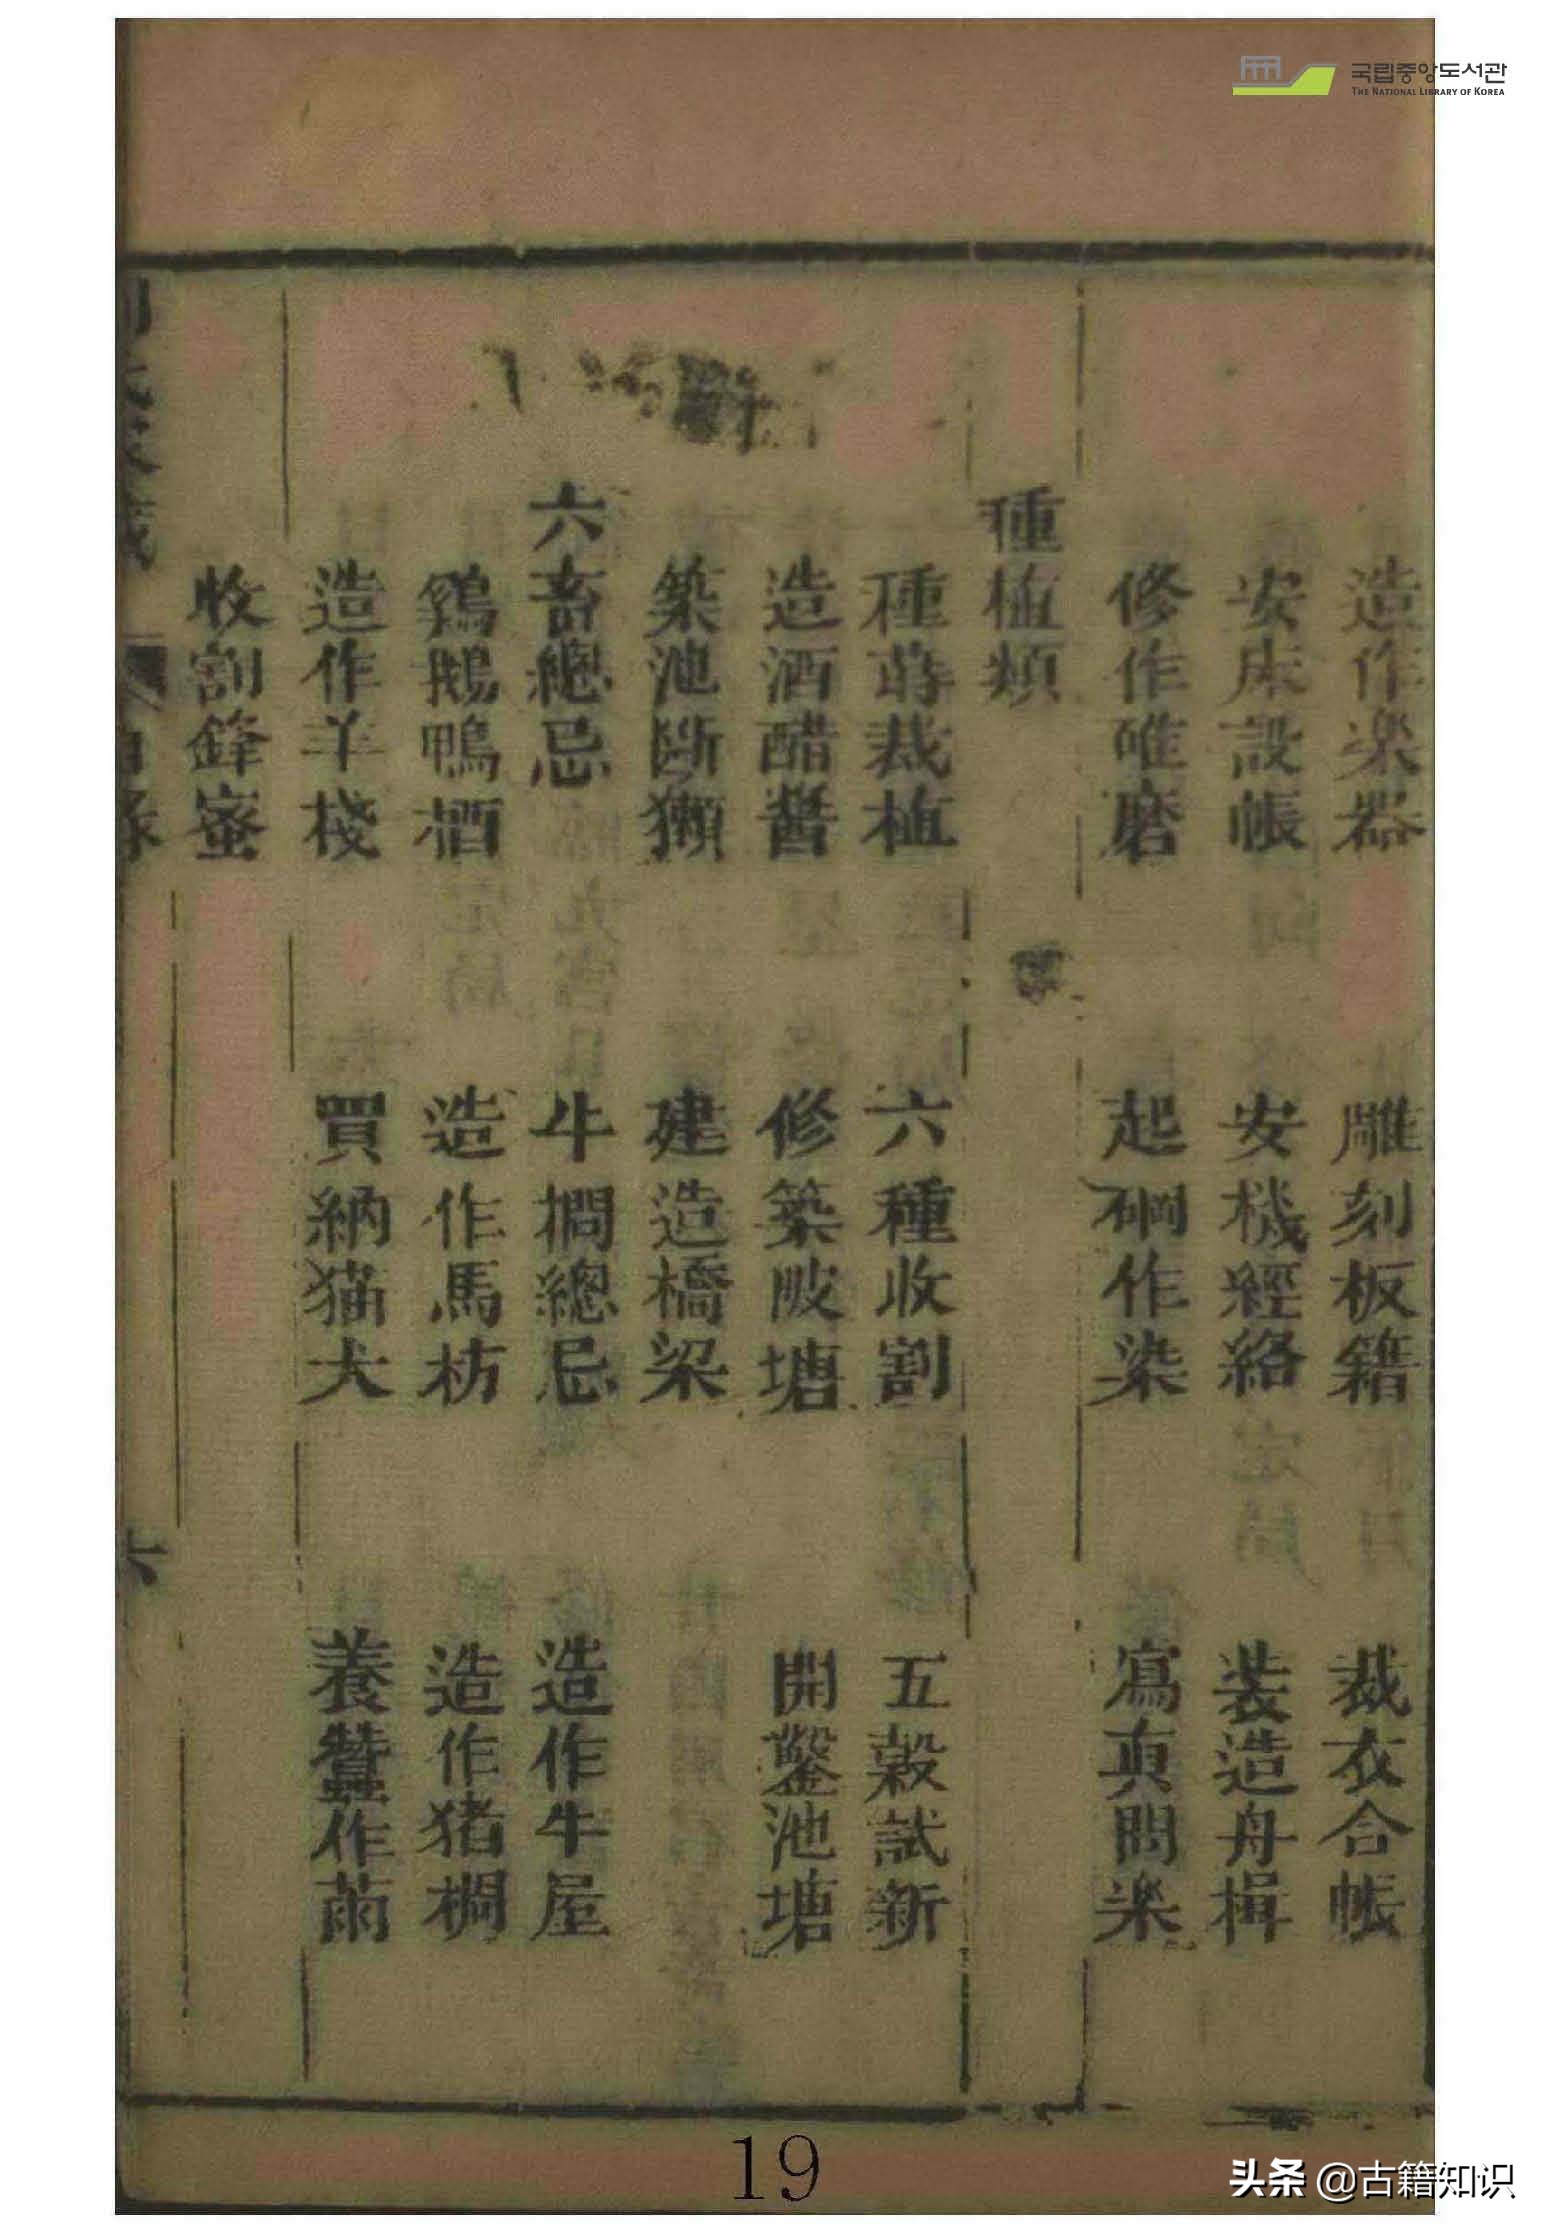 국립중앙도서관
THE NATIONAL LIBRARY OF KOREA
造作樂器 雕刻板籍 裁衣合帳
安床設帳 安機經絡 裝造舟楫
修作碓磨 起硐作染 寫真問樂
種植類
種蒔栽植 六種收割 五穀試新
造酒醋醬 修築陂塘 開鑿池塘
築池斷獺 建造橋梁
六畜總忌 牛欄總忌 造作牛屋
鷄鵝鴨栖 造作馬枋 造作猪欄
造作羊棧 買納猫犬 養蠶作繭
收割蜂蜜
目錄 六
19
头条 @古籍知识